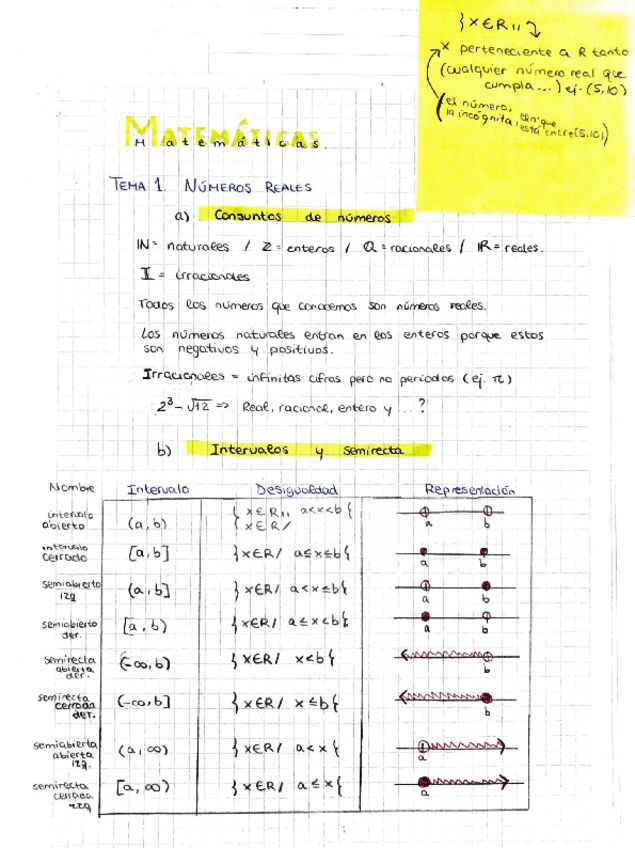 } x∈R,,
x perteneciente a R tanto
(cualquier número real que
cumpla...) ej. (5,10)
(el número,
la incógnita, en que
está entre (5,10)
MATEMÁTICAS
Matemáticas.
TEMA 1. NÚMEROS REALES
a) Conjuntos de números
IN = naturales / Z = enteros / Q = racionales / IR = reales.
I = irracionales
Todos los números que conocemos son números reales.
Los números naturales entran en los enteros porque estos
son negativos y positivos.
Irracionales = infinitas cifras pero no periodos (ej. π)
2³ - √12 => Real, racional, entero y ...?
b) Intervalos y semirecta
Nombre Intervalo Desigualdad Representación
intervalo abierto (a, b) { x∈R,, a<x<b { { x∈R/ a b
intervalo cerrado [a, b] } x∈R/ a≤x≤b { a b
semiabierto izq (a, b] } x∈R/ a<x≤b { a b
semiabierto der. [a, b) } x∈R/ a≤x<b { a b
semirecta abierta der. (-∞, b) } x∈R/ x<b { b
semirecta cerrada der. (-∞, b] } x∈R/ x≤b { b
semiabierta abierta izq. (a, ∞) } x∈R/ a<x { a
semirecta cerrada izq [a, ∞) } x∈R/ a≤x { a